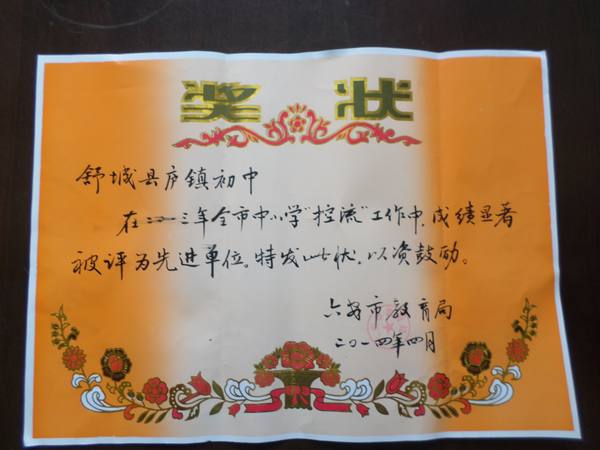 奖状
舒城县庐镇初中
在二〇一三年全市中小学"控流"工作中,成绩显著
被评为先进单位。特发此状,以资鼓励。
六安市教育局
二〇一四年四月